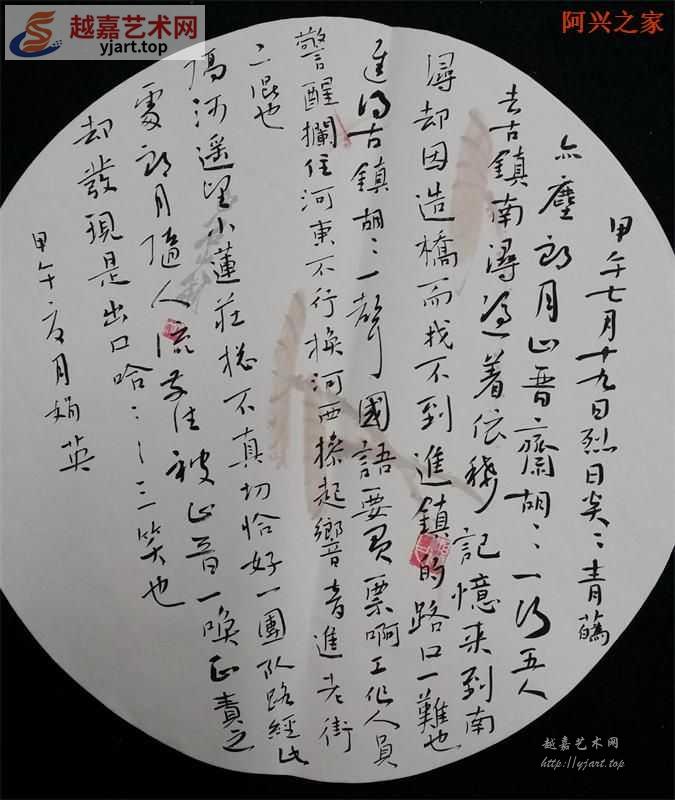 越嘉艺术网
yjart.top
阿兴之家
甲午七月十九日烈日炎：青藕
亦塵 郎月 山晋齋 胡：一行五人
去古鎮南潯逛着依稀記憶来到南
潯却因造橋而找不到進鎮的路口一難也
進得古鎮胡：一聲國語要買票啊工作人員
警醒攔住河東不行换河西操起響音進老街
二混也
隔河遥望小蓮莊极不真切恰好一團队路經此
處郎月随人流前往被山晋一唤正責之
却發現是出口哈：三笑也
甲午 月娟英
越嘉艺术网
http://yjart.top